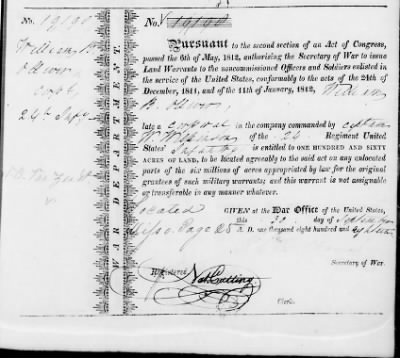 No. 19190
William B.
Oliver,
Corpl
24th Inft
WAR DEPARTMENT.
No. 19190
Pursuant to the second section of an Act of Congress,
passed the 6th of May, 1812, authorising the Secretary of War to issue
Land Warrants to the noncommissioned Officers and Soldiers enlisted in
the service of the United States, conformably to the acts of the 24th of
December, 1811, and of the 11th of January, 1812, William
B. Oliver,
late a corporal in the company commanded by captain
of the 24 Regiment United
States' Infantry is entitled to ONE HUNDRED AND SIXTY
ACRES OF LAND, to be located agreeably to the said act on any unlocated
parts of the six millions of acres appropriated by law for the original
grantees of such military warrants; and this warrant is not assignable
or transferable in any manner whatever.
Located GIVEN at the War Office of the United States,
Page 25 this 30 day of September
A. D. one thousand eight hundred and eighteen
Secretary of War.
Registered Nath Cutting
Clerk.